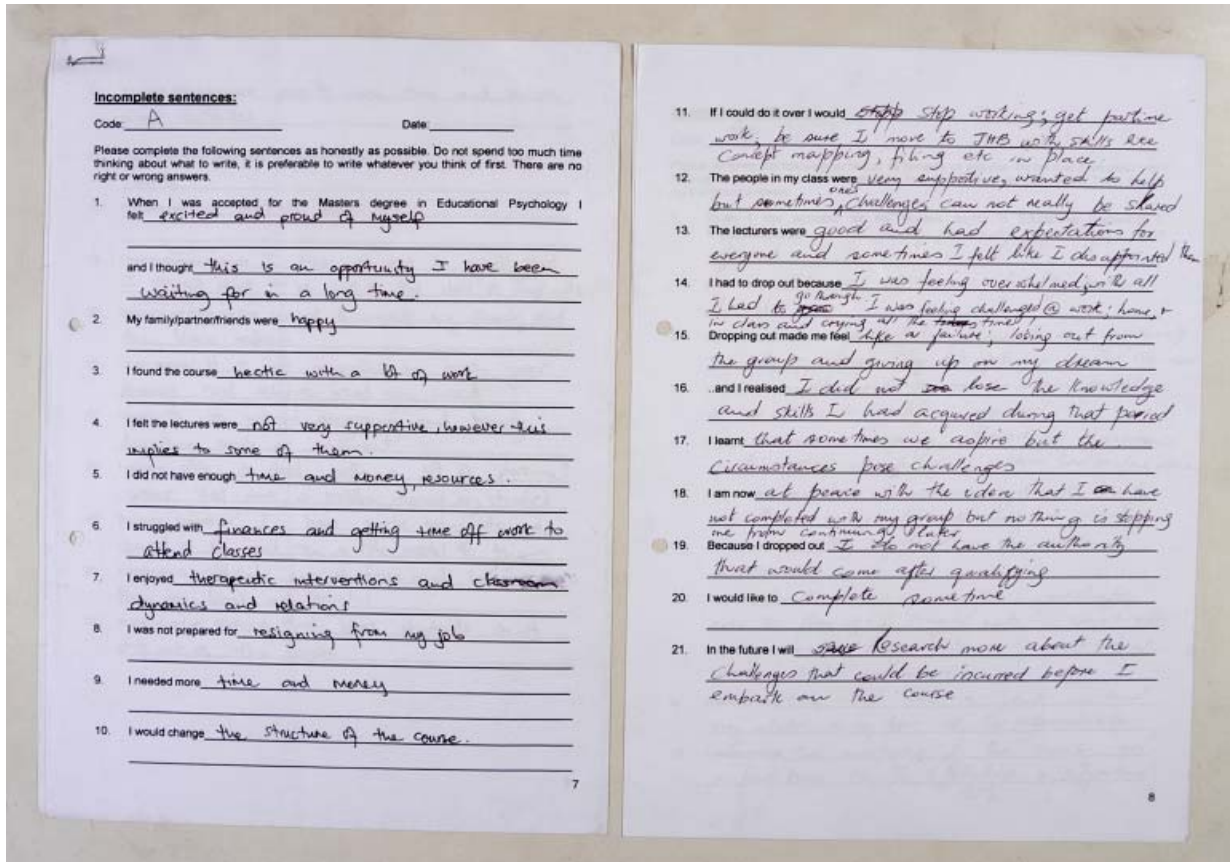 Incomplete sentences:
Code: A Date:
Please complete the following sentences as honestly as possible. Do not spend too much time
thinking about what to write, it is preferable to write whatever you think of first. There are no
right or wrong answers.
1. When I was accepted for the Masters degree in Educational Psychology I
felt excited and proud of myself
and I thought this is an opportunity I have been
waiting for in a long time.
2. My family/partner/friends were happy
3. I found the course hectic with a lot of work
4. I felt the lectures were not very supportive, however this
implies to some of them.
5. I did not have enough time and money, resources.
6. I struggled with finances and getting time off work to
attend classes
7. I enjoyed therapeutic interventions and classroom
dynamics and relations
8. I was not prepared for resigning from my job
9. I needed more time and money
10. I would change the structure of the course.
7
11. If I could do it over I would stop working; get partime
work; be sure I move to JHB with skills like
concept mapping, filing etc in place
12. The people in my class were very supportive, wanted to help
but sometimes ones challenges can not really be shared
13. The lecturers were good and had expectations for
everyone and sometimes I felt like I disappointed them
14. I had to drop out because I was feeling overwhelmed with all
I had to go through I was feeling challenged @ work; home, +
in class and crying all the time
15. Dropping out made me feel like a failure; losing out from
the group and giving up on my dream
16. ..and I realised I did not lose the knowledge
and skills I had acquired during that period
17. I learnt that sometimes we aspire but the
circumstances pose challenges
18. I am now at peace with the idea that I have
not completed with my group but nothing is stopping
me from continuing later
19. Because I dropped out I do not have the authority
that would come after qualifying
20. I would like to complete sometime
21. In the future I will research more about the
challenges that could be incurred before I
embark on the course
8